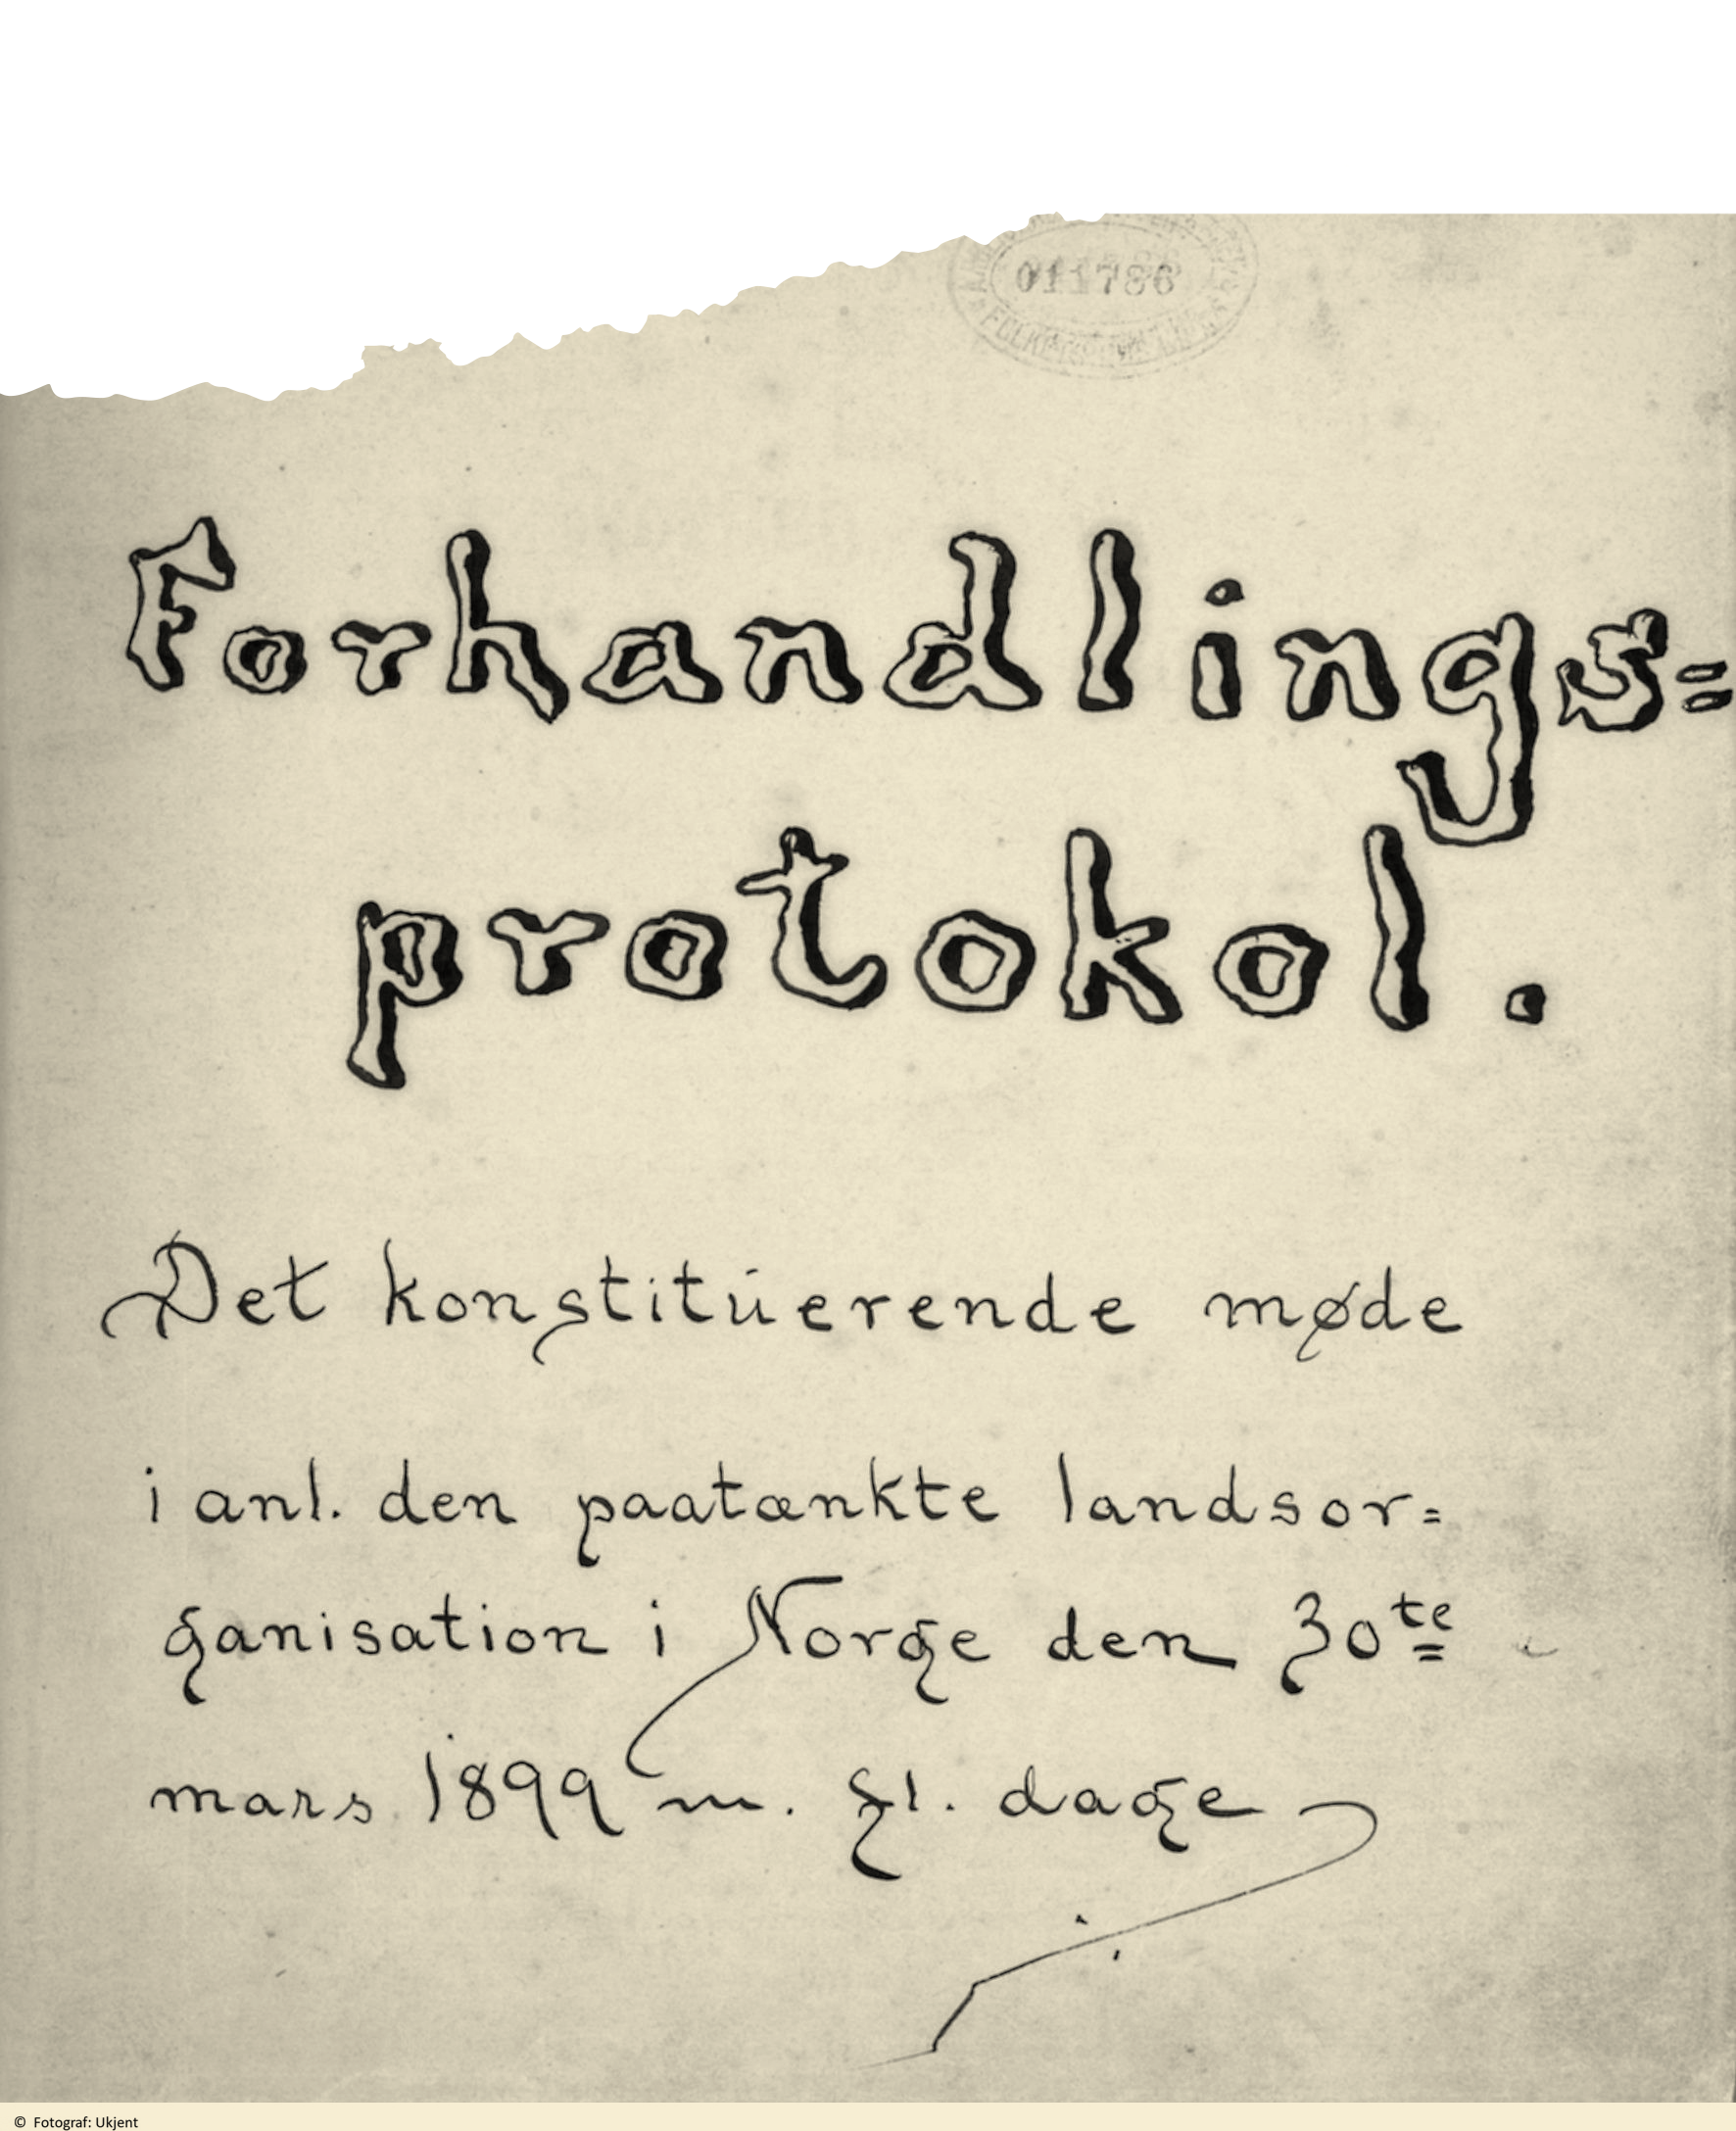 011786
Forhandlings=
protokol.
Det konstituerende møde
i anl. den paatænkte landsor=
ganisation i Norge den 30te
mars 1899 m. fl. dage
© Fotograf: Ukjent